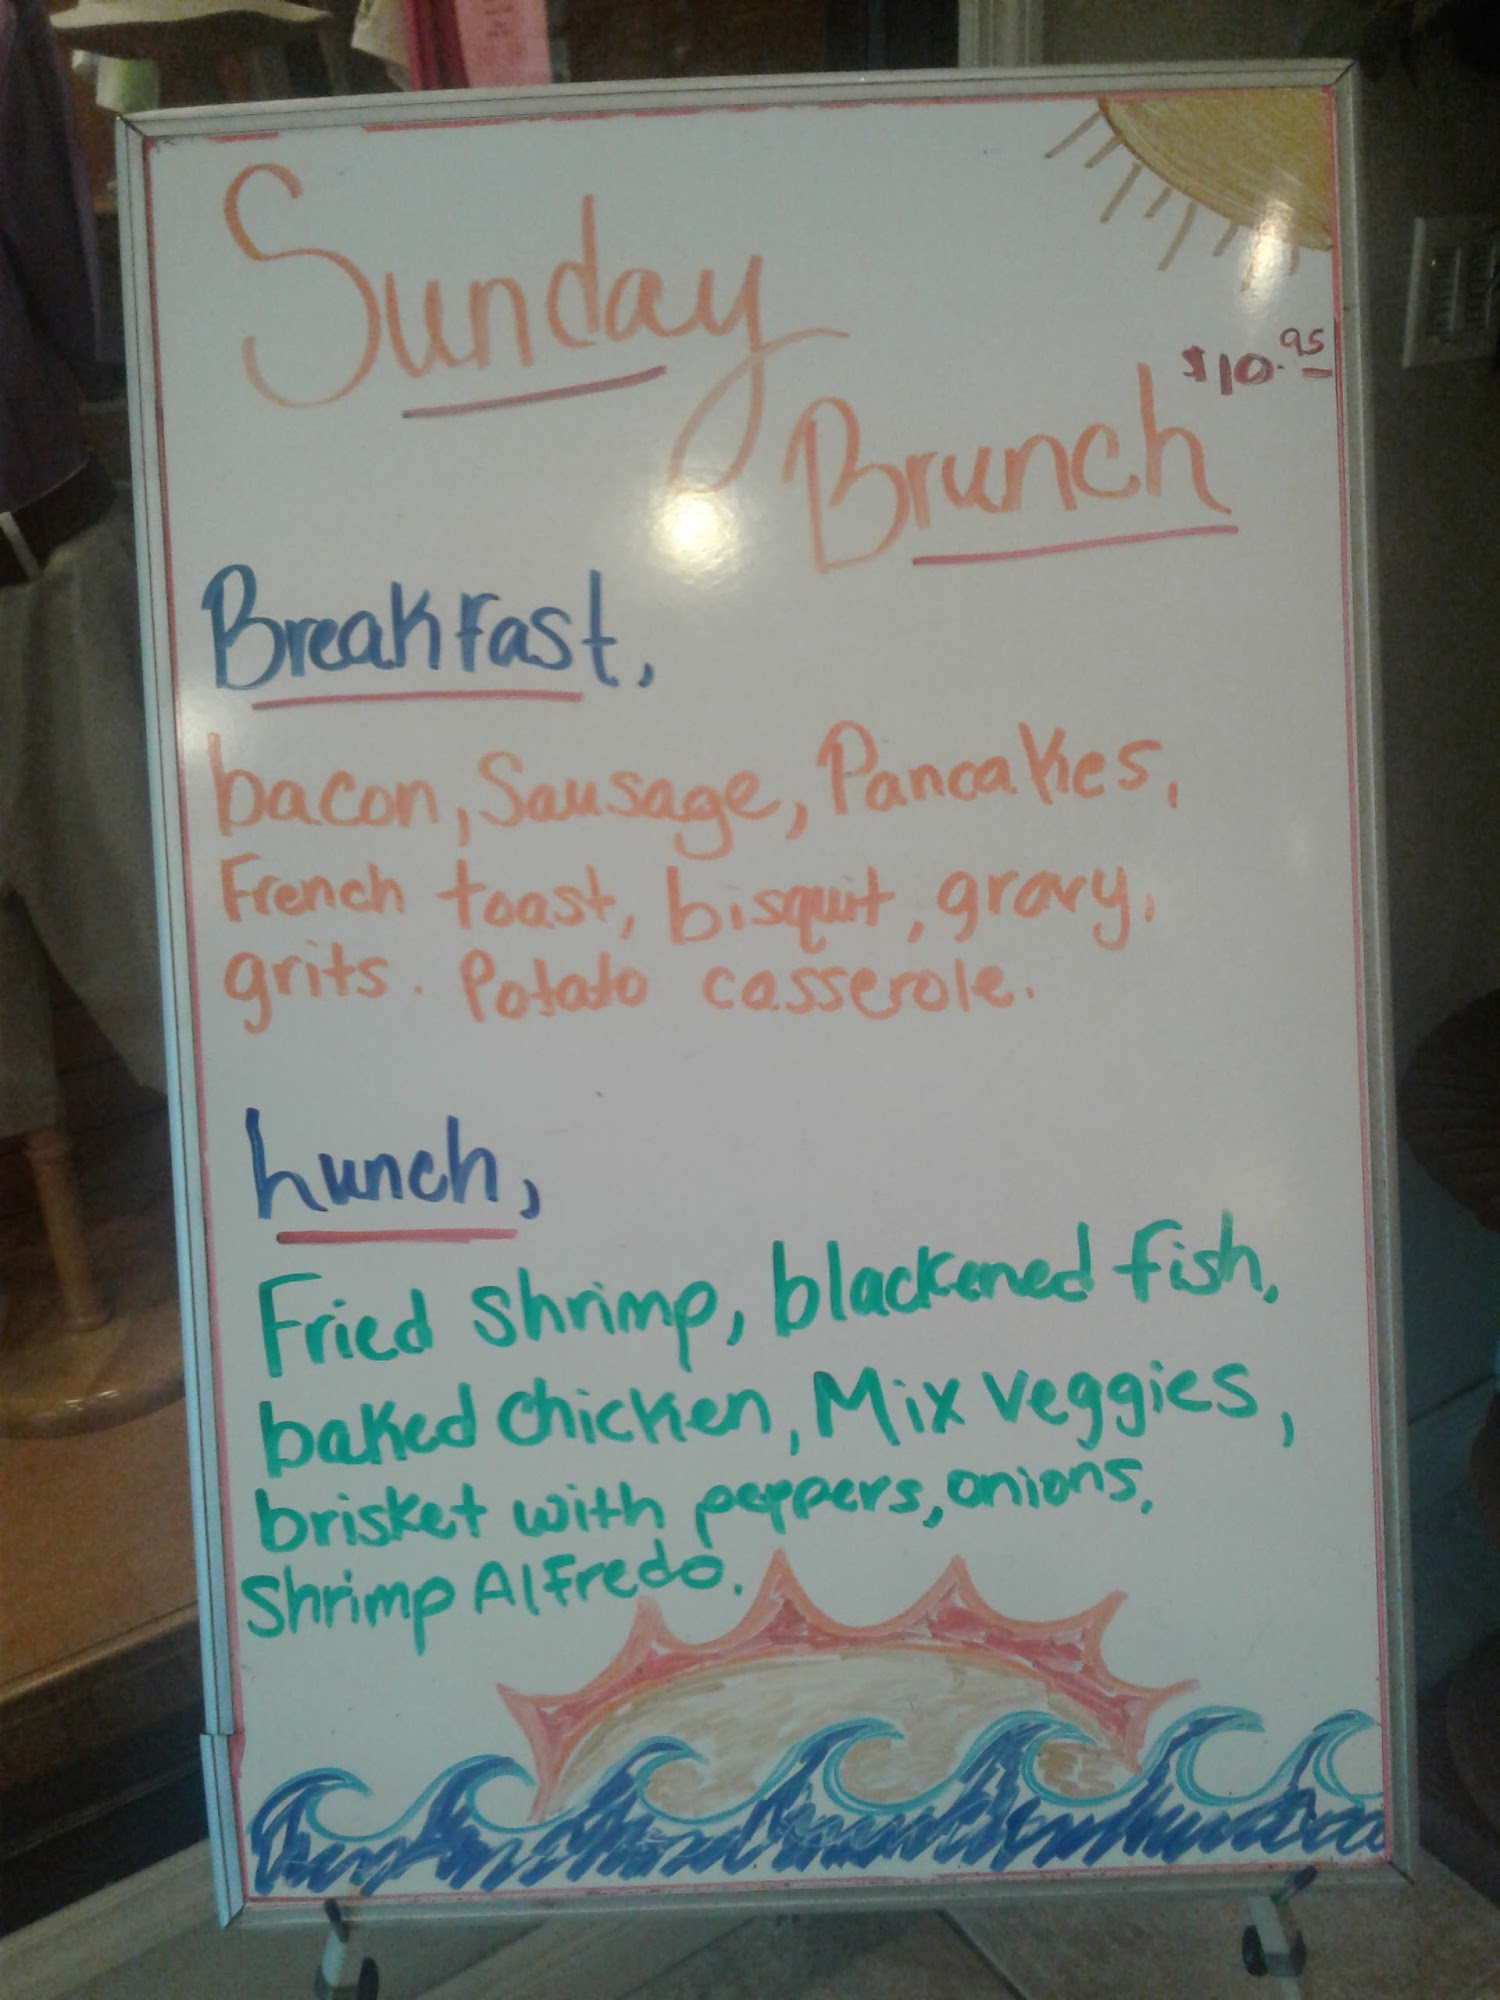 Sunday
$10.95
Brunch
Breakfast,
bacon, Sausage, Pancakes,
French toast, bisquit, gravy,
grits. Potato casserole.
Lunch,
Fried shrimp, blackened fish,
baked chicken, Mix veggies,
brisket with peppers, onions,
Shrimp Alfredo.